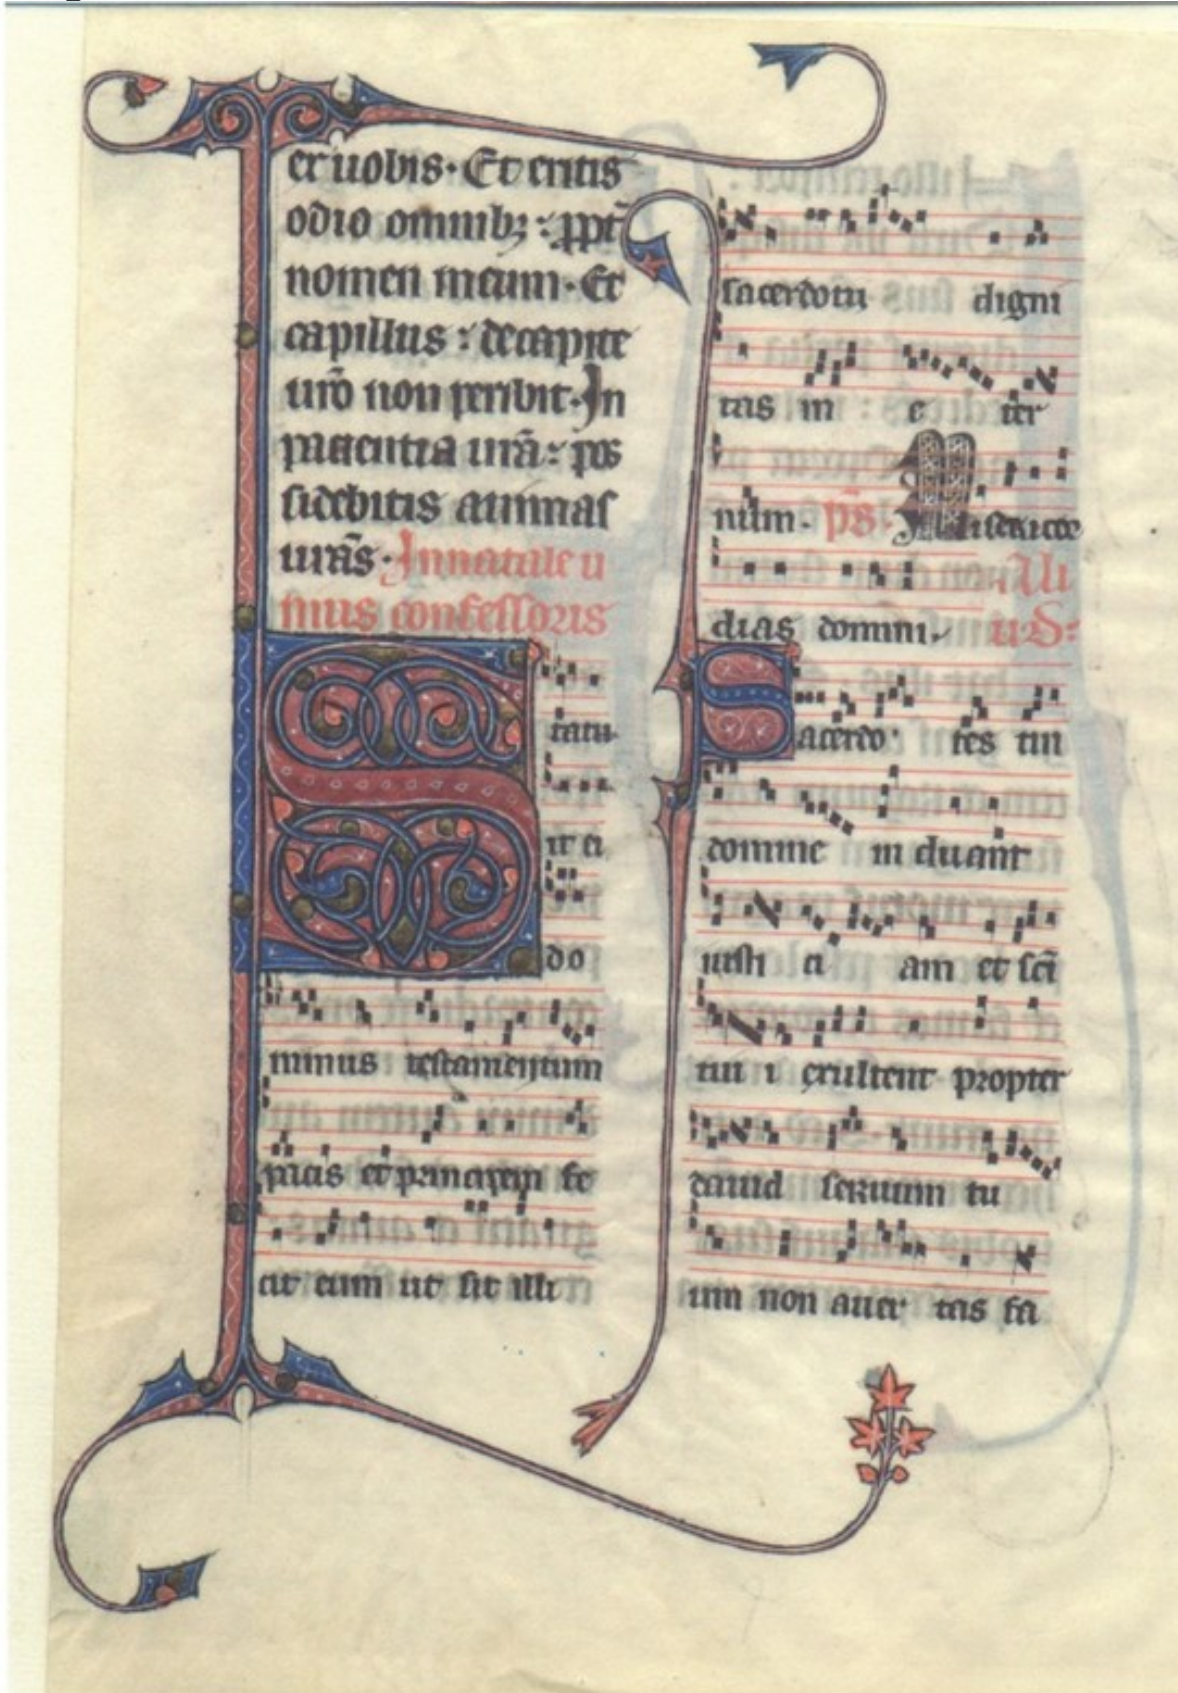 ex uobis. Et eritis
odio omnibꝫ: ꝓpt̄
nomen meum. Et
capillus: de capite
ur̄o non peribit. In
pacientia ur̄a: pos
sidebitis animas
ur̄as. In natale u
nius confessoris
Statu
it ei
do
minus testamentum
pacis et principem fe
cit eum ut sit illi
sacerdotii digni
tas in e ter
num. p̄s. Misericor
dias domini. Ali
u d:
Sacerdo tes tui
domine induant
iusti ci am et sc̄i
tui exultent propter
dauid seruum tu
um non auer tas fa